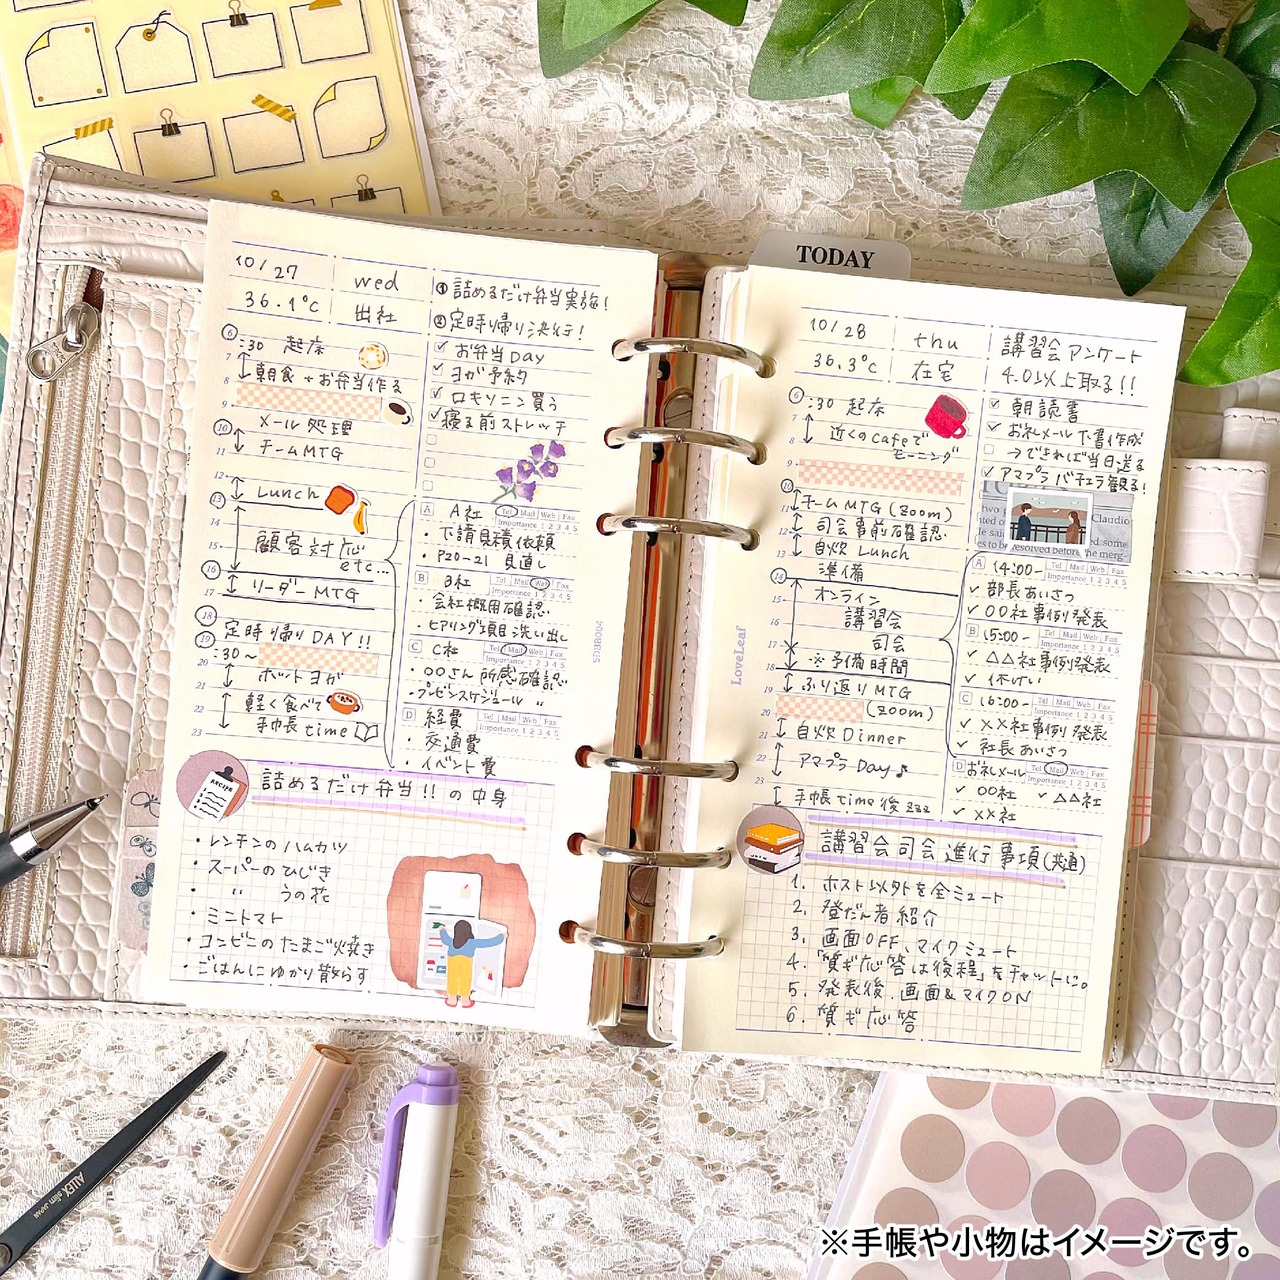 TODAY
10/27
wed
36.1℃
出社
① 詰めるだけ弁当実施!
② 定時帰り決行!
✓ お弁当DAY
✓ ヨガ予約
✓ ロキソニン買う
✓ 寝る前ストレッチ
6 :30 起床
7 朝食+お弁当作る
8
9
10 メール処理
11 チームMTG
12
13 Lunch
14
15 顧客対応 etc...
16
17 リーダーMTG
18 定時帰りDAY!!
19 :30~
20 ホットヨガ
21
22 軽く食べて
23 手帳time
A A社
Tel Mail Web Fax
Importance 1 2 3 4 5
・下請見積依頼
・P20-21 見直し
B B社
Tel Mail Web Fax
Importance 1 2 3 4 5
・会社概用確認
・ヒアリング項目洗い出し
C C社
Tel Mail Web Fax
Importance 1 2 3 4 5
・〇〇さん所感確認
・プレゼンスケジュール 〃
D 経費
Tel Mail Web Fax
Importance 1 2 3 4 5
・交通費
・イベント費
SDBB004
RECIPE
詰めるだけ弁当!!の中身
・レンチンのハムカツ
・スーパーのひじき
・ 〃 うの花
・ミニトマト
・コンビニのたまご焼き
・ごはんにゆかり散らす
10/28
thu
36.3℃
在宅
講習会アンケート
4.0以上取る!!
✓ 朝読書
✓ お礼メール下書作成
→できれば当日送る
✓ アマプラバチェラ観る!
6 :30 起床
7
8 近くのCafeで
モーニング
9
10
11 チームMTG(Zoom)
12 司会事前確認
13 自炊Lunch
準備
14
15 オンライン
16 講習会
17 司会
18 ※予備時間
19 ふり返りMTG
20 (Zoom)
21 自炊Dinner
22 アマプラDay♪
23
手帳time後zzz
Claudio
A 14:00-
Tel Mail Web Fax
Importance 1 2 3 4 5
✓ 部長あいさつ
✓ 〇〇社事例発表
B 15:00-
Tel Mail Web Fax
Importance 1 2 3 4 5
✓ △△社事例発表
✓ 休けい
C 16:00-
Tel Mail Web Fax
Importance 1 2 3 4 5
✓ ××社事例発表
✓ 社長あいさつ
D お礼メール
Tel Mail Web Fax
Importance 1 2 3 4 5
✓ 〇〇社 ✓ △△社
✓ ××社
LoveLeaf
講習会司会進行事項(共通)
1. ホスト以外を全ミュート
2. 登だん者紹介
3. 画面OFF、マイクミュート
4. 「質ギ応答は後程」をチャットに。
5. 発表後、画面&マイクON
6. 質ギ応答
ALLEX slim JAPAN
※手帳や小物はイメージです。